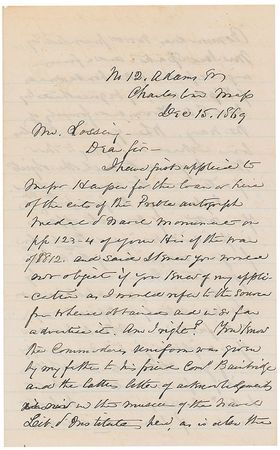 No 12. Adams St
Charlestown Mass
Dec 15. 1869
Mr. Lossing -
Dear Sir -
I have just applied to
Messr Harper for the loan or hire
of the cuts of the Portrait autograph
Medal & Naval Monument on
pp 123-4 of your His of the war
of 1812. and said I knew you would
not object if you knew of my appli-
cation as I would refer to the source
from whence obtained and in so far
advertise it. Am I right? You know
the Commodores uniform was given
by my father to his friend Com Bainbridge
and the latters letter of acknowledgment
in the museum of the Naval
Lib. & Institute, here, as is also the